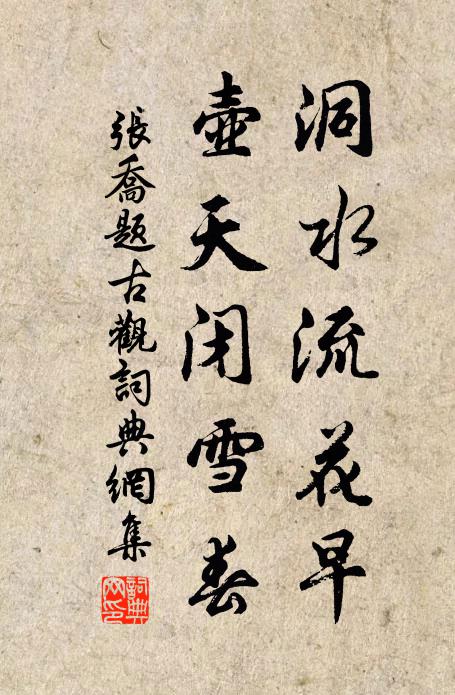 洞水流花早
壺天闭雪春
張喬題古觀詞典網集
詞典网印